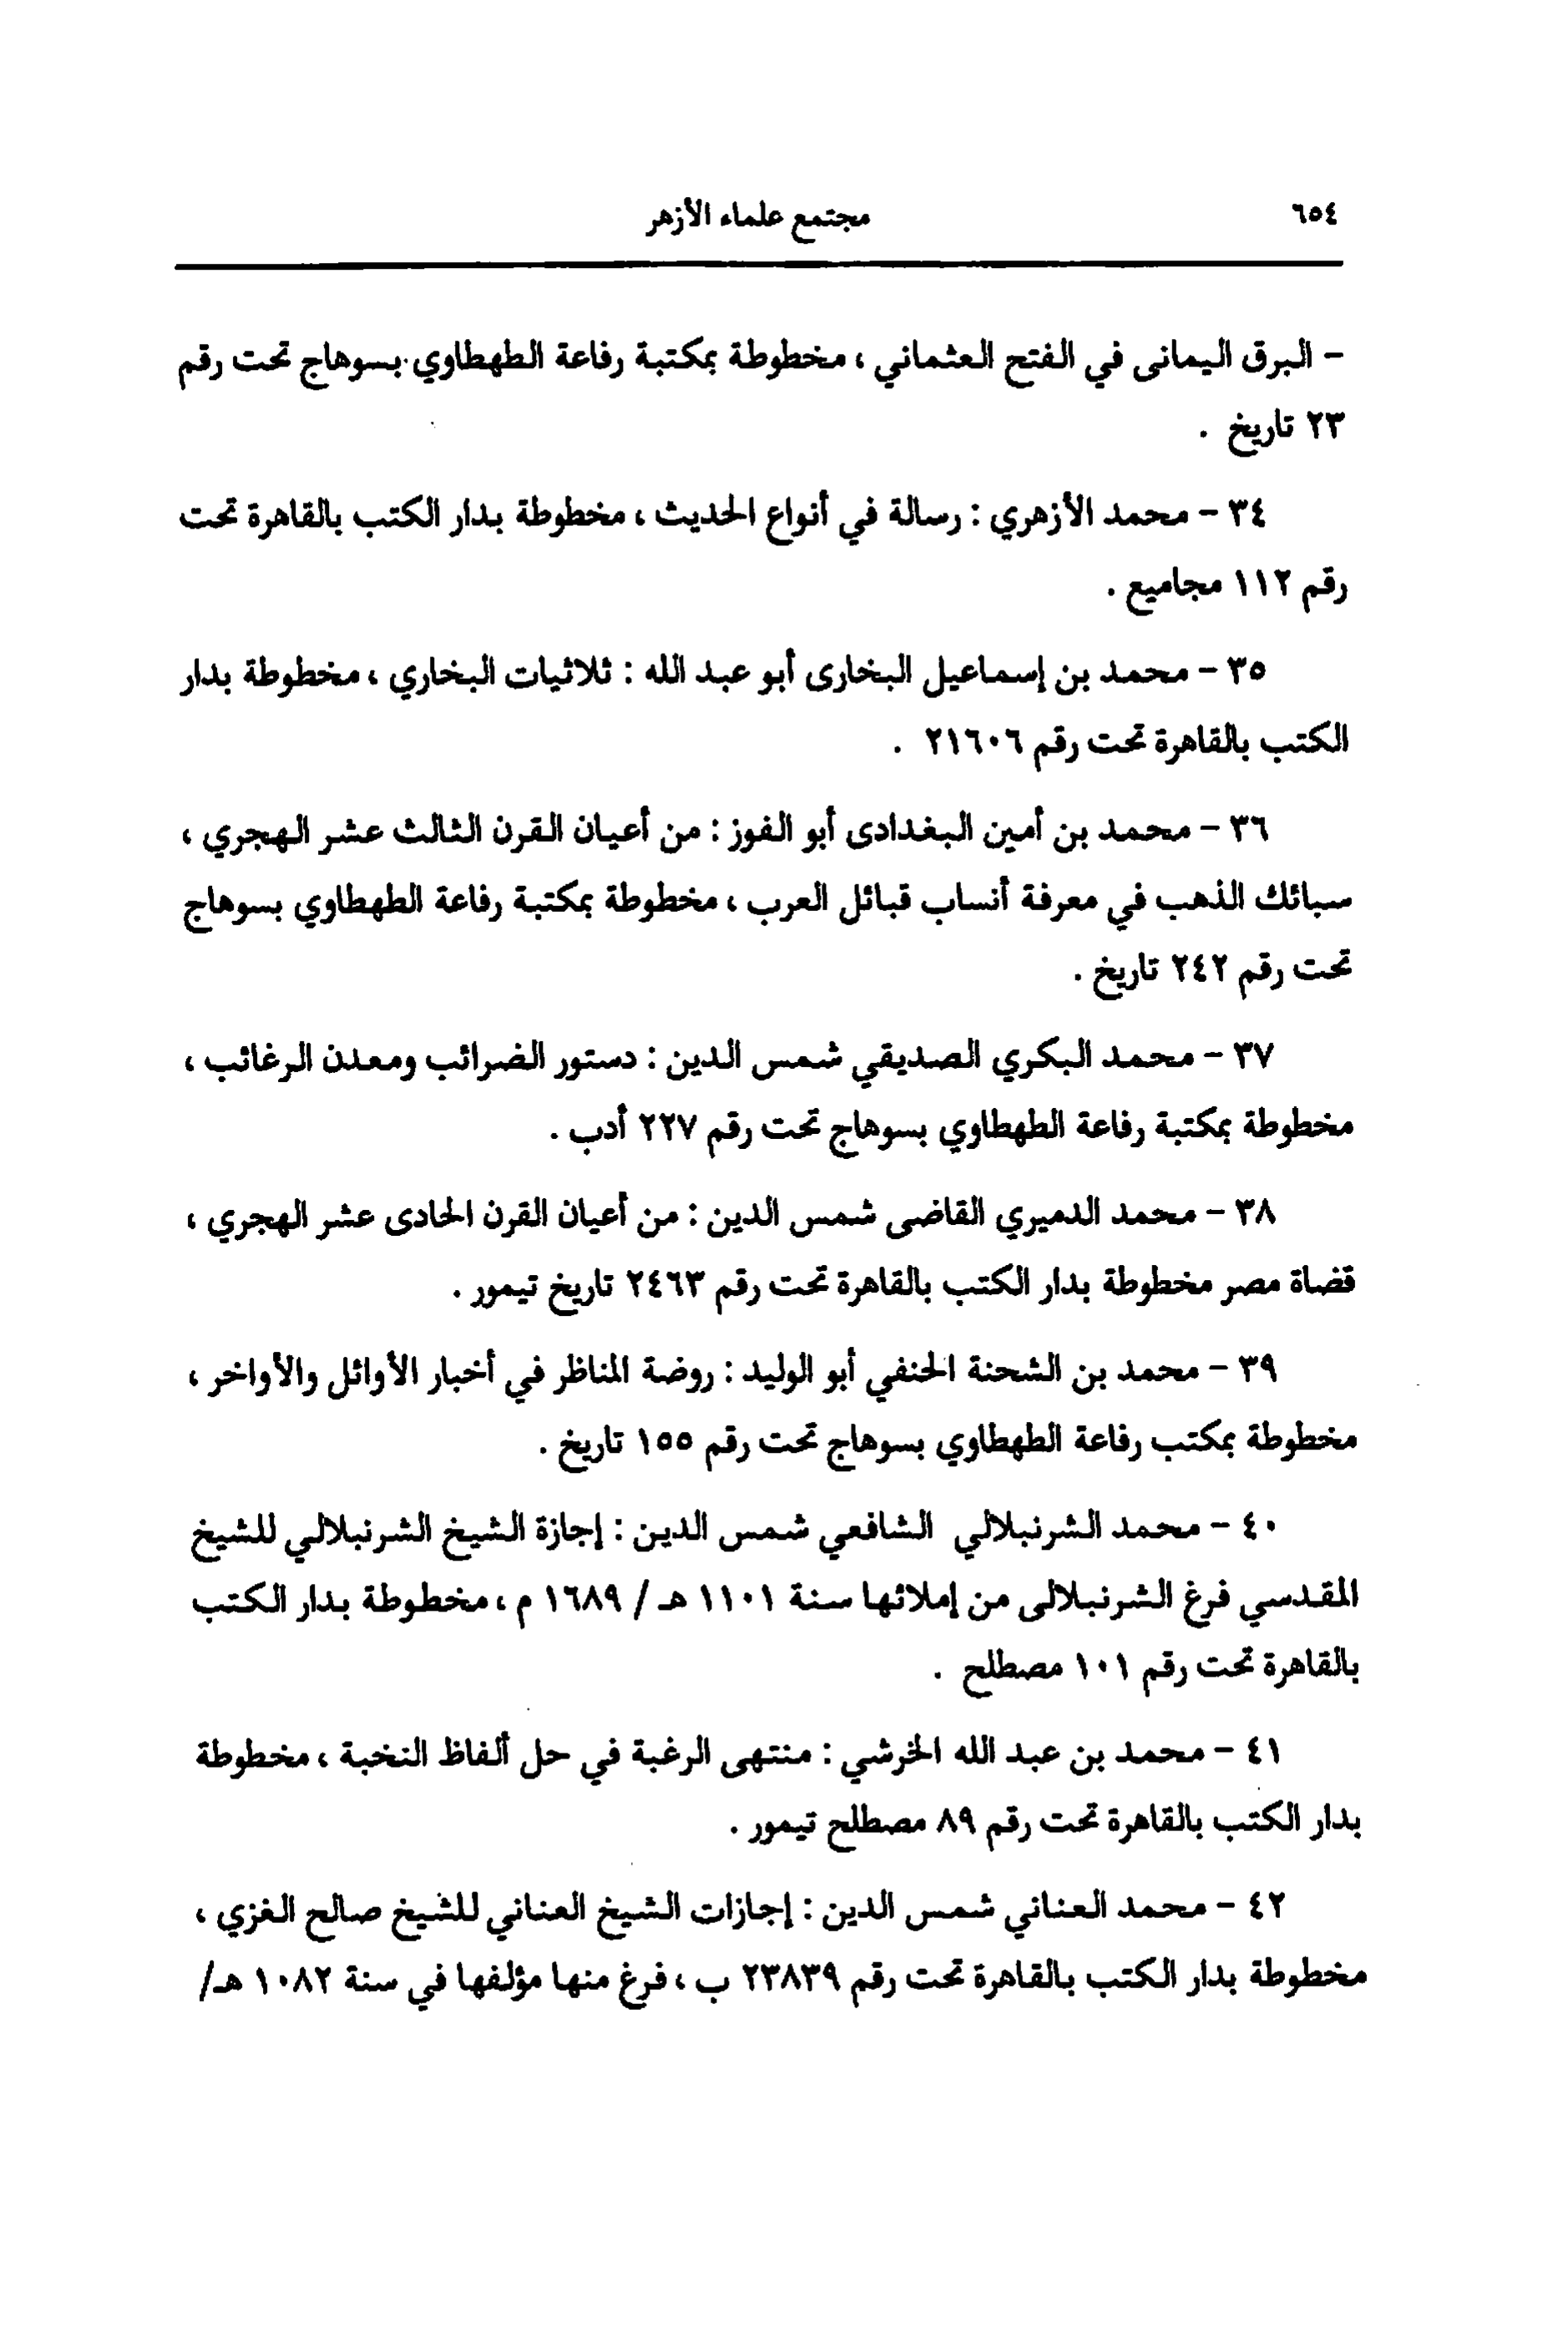 ٦٥٤
مجتمع علماء الأزهر
- البرق اليمانى في الفتح العثماني ، مخطوطة بمكتبة رفاعة الطهطاوي بسوهاج تحت رقم
٢٣ تاريخ .
٣٤ - محمد الأزهري : رسالة في أنواع الحديث ، مخطوطة بدار الكتب بالقاهرة تحت
رقم ١١٢ مجاميع .
٣٥ - محمد بن إسماعيل البخارى أبو عبد الله : ثلاثيات البخاري ، مخطوطة بدار
الكتب بالقاهرة تحت رقم ٢١٦٠٦ .
٣٦ - محمد بن أمين البغدادى أبو الفوز : من أعيان القرن الثالث عشر الهجري ،
سبائك الذهب في معرفة أنساب قبائل العرب ، مخطوطة بمكتبة رفاعة الطهطاوي بسوهاج
تحت رقم ٢٤٢ تاريخ .
٣٧ - محمد البكري الصديقي شمس الدين : دستور الضرائب ومعدن الرغائب ،
مخطوطة بمكتبة رفاعة الطهطاوي بسوهاج تحت رقم ٢٢٧ أدب .
٣٨ - محمد الدميري القاضى شمس الدين : من أعيان القرن الحادى عشر الهجري ،
قضاة مصر مخطوطة بدار الكتب بالقاهرة تحت رقم ٢٤٦٣ تاريخ تيمور .
٣٩ - محمد بن الشحنة الحنفي أبو الوليد : روضة المناظر في أخبار الأوائل والأواخر ،
مخطوطة بمكتب رفاعة الطهطاوي بسوهاج تحت رقم ١٥٥ تاريخ .
٤٠ - محمد الشرنبلالي الشافعي شمس الدين : إجازة الشيخ الشرنبلالي للشيخ
المقدسي فرغ الشرنبلالى من إملائها سنة ١١٠١ هـ / ١٦٨٩ م ، مخطوطة بدار الكتب
بالقاهرة تحت رقم ١٠١ مصطلح .
٤١ - محمد بن عبد الله الخرشي : منتهى الرغبة في حل ألفاظ النخبة ، مخطوطة
بدار الكتب بالقاهرة تحت رقم ٨٩ مصطلح تيمور .
٤٢ - محمد العناني شمس الدين : إجازات الشيخ العناني للشيخ صالح الغزي ،
مخطوطة بدار الكتب بالقاهرة تحت رقم ٢٣٨٣٩ ب ، فرغ منها مؤلفها في سنة ١٠٨٢ هـ/